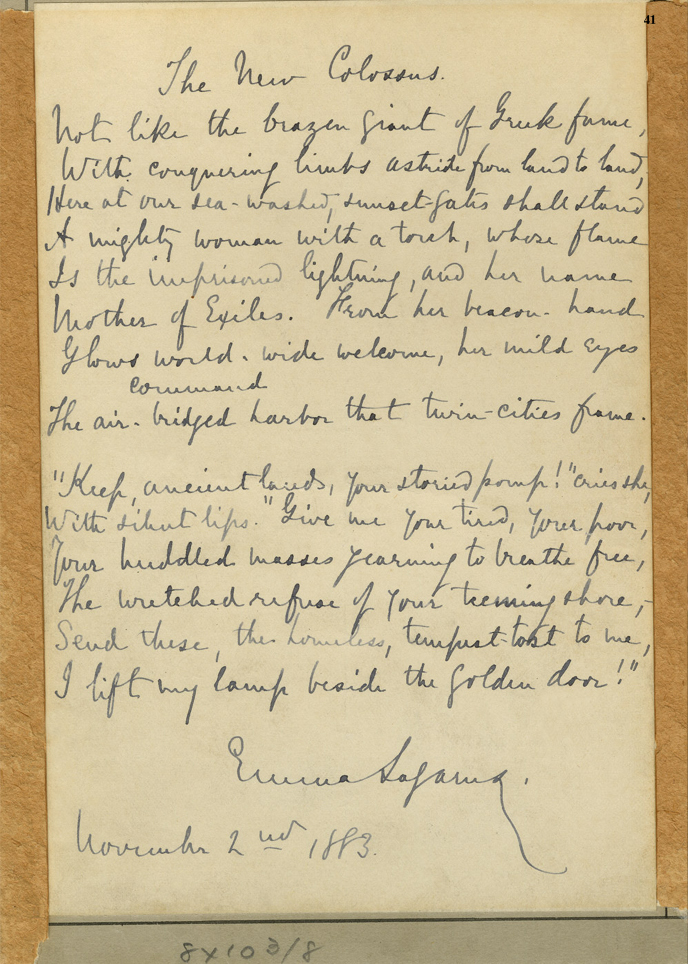 41
The New Colossus.
Not like the brazen giant of Greek fame,
With conquering limbs astride from land to land;
Here at our sea-washed, sunset-gates shall stand
A mighty woman with a torch, whose flame
Is the imprisoned lightning, and her name
Mother of Exiles. From her beacon-hand
Glows world-wide welcome, her mild eyes
command
The air-bridged harbor that twin-cities frame.
"Keep, ancient lands, your storied pomp!" cries she,
With silent lips. "Give me your tired, your poor,
Your huddled masses yearning to breathe free,
The wretched refuse of your teeming shore,-
Send these, the homeless, tempest-tost to me,
I lift my lamp beside the golden door!"
Emma Lazarus.
November 2nd 1883.
8x10 3/8